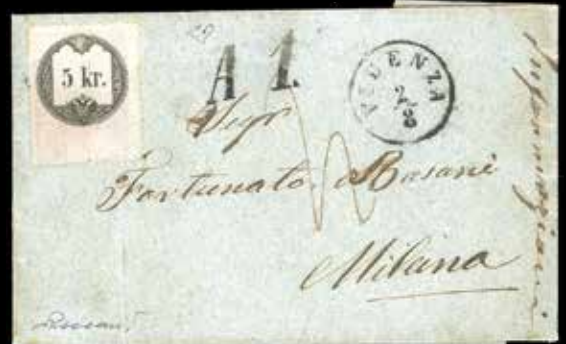 5 kr.
A 1.
VICENZA
2/8
Sigr
Fortunato Basani
Milano